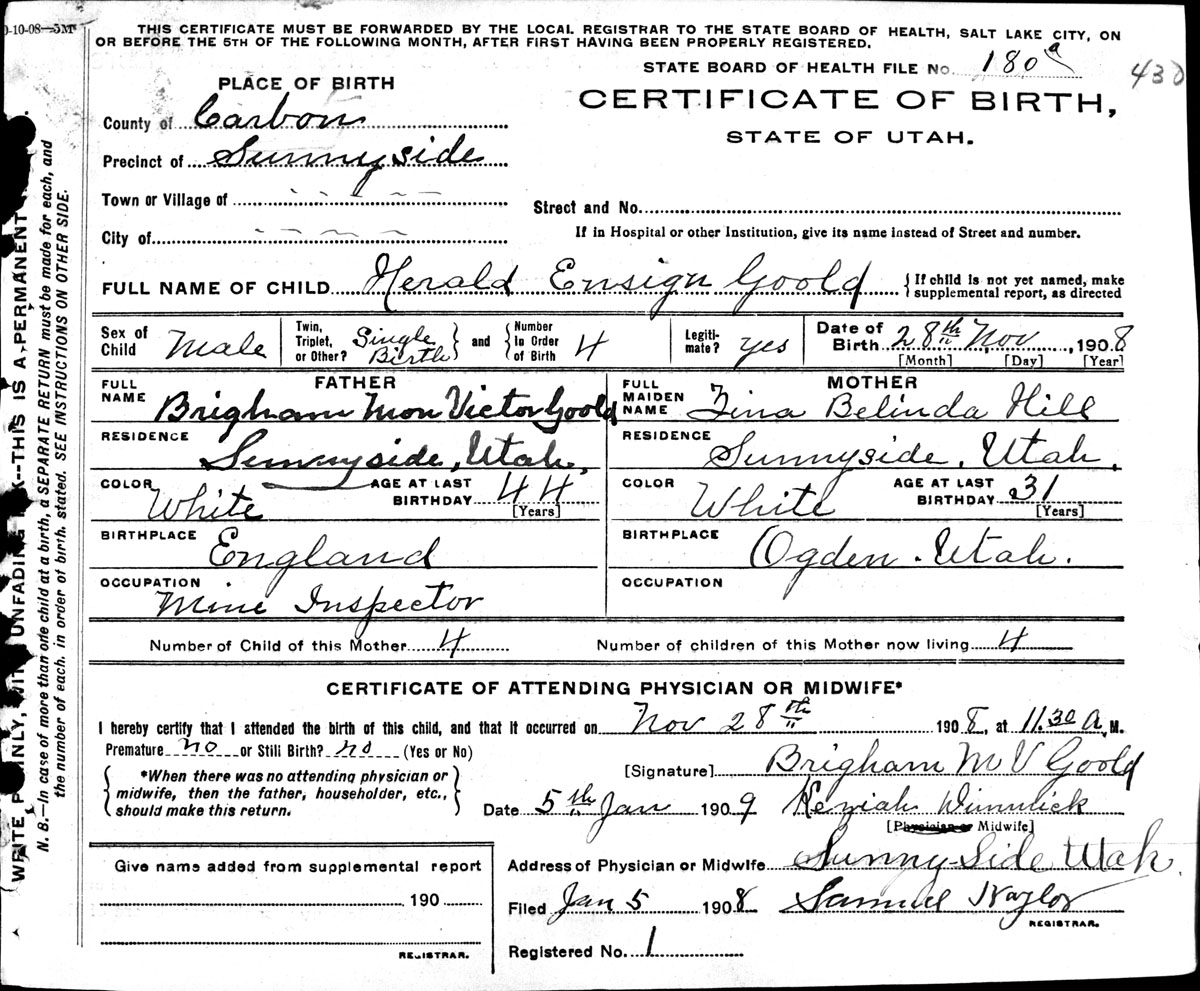 0-10-08—5M
THIS CERTIFICATE MUST BE FORWARDED BY THE LOCAL REGISTRAR TO THE STATE BOARD OF HEALTH, SALT LAKE CITY, ON
OR BEFORE THE 5TH OF THE FOLLOWING MONTH, AFTER FIRST HAVING BEEN PROPERLY REGISTERED.
STATE BOARD OF HEALTH FILE No. 180a
430
PLACE OF BIRTH
CERTIFICATE OF BIRTH,
STATE OF UTAH.
County of Carbon
Precinct of Sunnyside
Town or Village of
Street and No.
City of
If in Hospital or other Institution, give its name instead of Street and number.
FULL NAME OF CHILD Herald Ensign Goold
{If child is not yet named, make
supplemental report, as directed
Sex of Child Male
Twin, Triplet, or Other? Single Birth
and
Number in Order of Birth 4
Legiti-mate? yes
Date of Birth 28th Nov, 1908
[Month] [Day] [Year]
FATHER
FULL NAME Brigham Mon Victor Goold
MOTHER
FULL MAIDEN NAME Zina Belinda Hill
RESIDENCE Sunnyside, Utah,
RESIDENCE Sunnyside, Utah.
COLOR White
AGE AT LAST BIRTHDAY 44
[Years]
COLOR White
AGE AT LAST BIRTHDAY 31
[Years]
BIRTHPLACE England
BIRTHPLACE Ogden. Utah.
OCCUPATION Mine Inspector
OCCUPATION
Number of Child of this Mother 4
Number of children of this Mother now living 4
CERTIFICATE OF ATTENDING PHYSICIAN OR MIDWIFE*
I hereby certify that I attended the birth of this child, and that it occurred on Nov 28th 1908, at 11.30 A. M.
Premature no or Still Birth? no (Yes or No)
*When there was no attending physician or
midwife, then the father, householder, etc.,
should make this return.
[Signature] Brigham M V Goold
Date 5th Jan 1909 Keziah
[Physician or Midwife]
Address of Physician or Midwife Sunny-Side Utah.
Filed Jan 5 1908 Samuel Naylor
REGISTRAR.
Registered No. 1
Give name added from supplemental report
190
REGISTRAR.
WRITE PLAINLY, WITH UNFADING INK--THIS IS A PERMANENT
N. B.—In case of more than one child at a birth, a SEPARATE RETURN must be made for each, and
the number of each, in order of birth, stated. SEE INSTRUCTIONS ON OTHER SIDE.